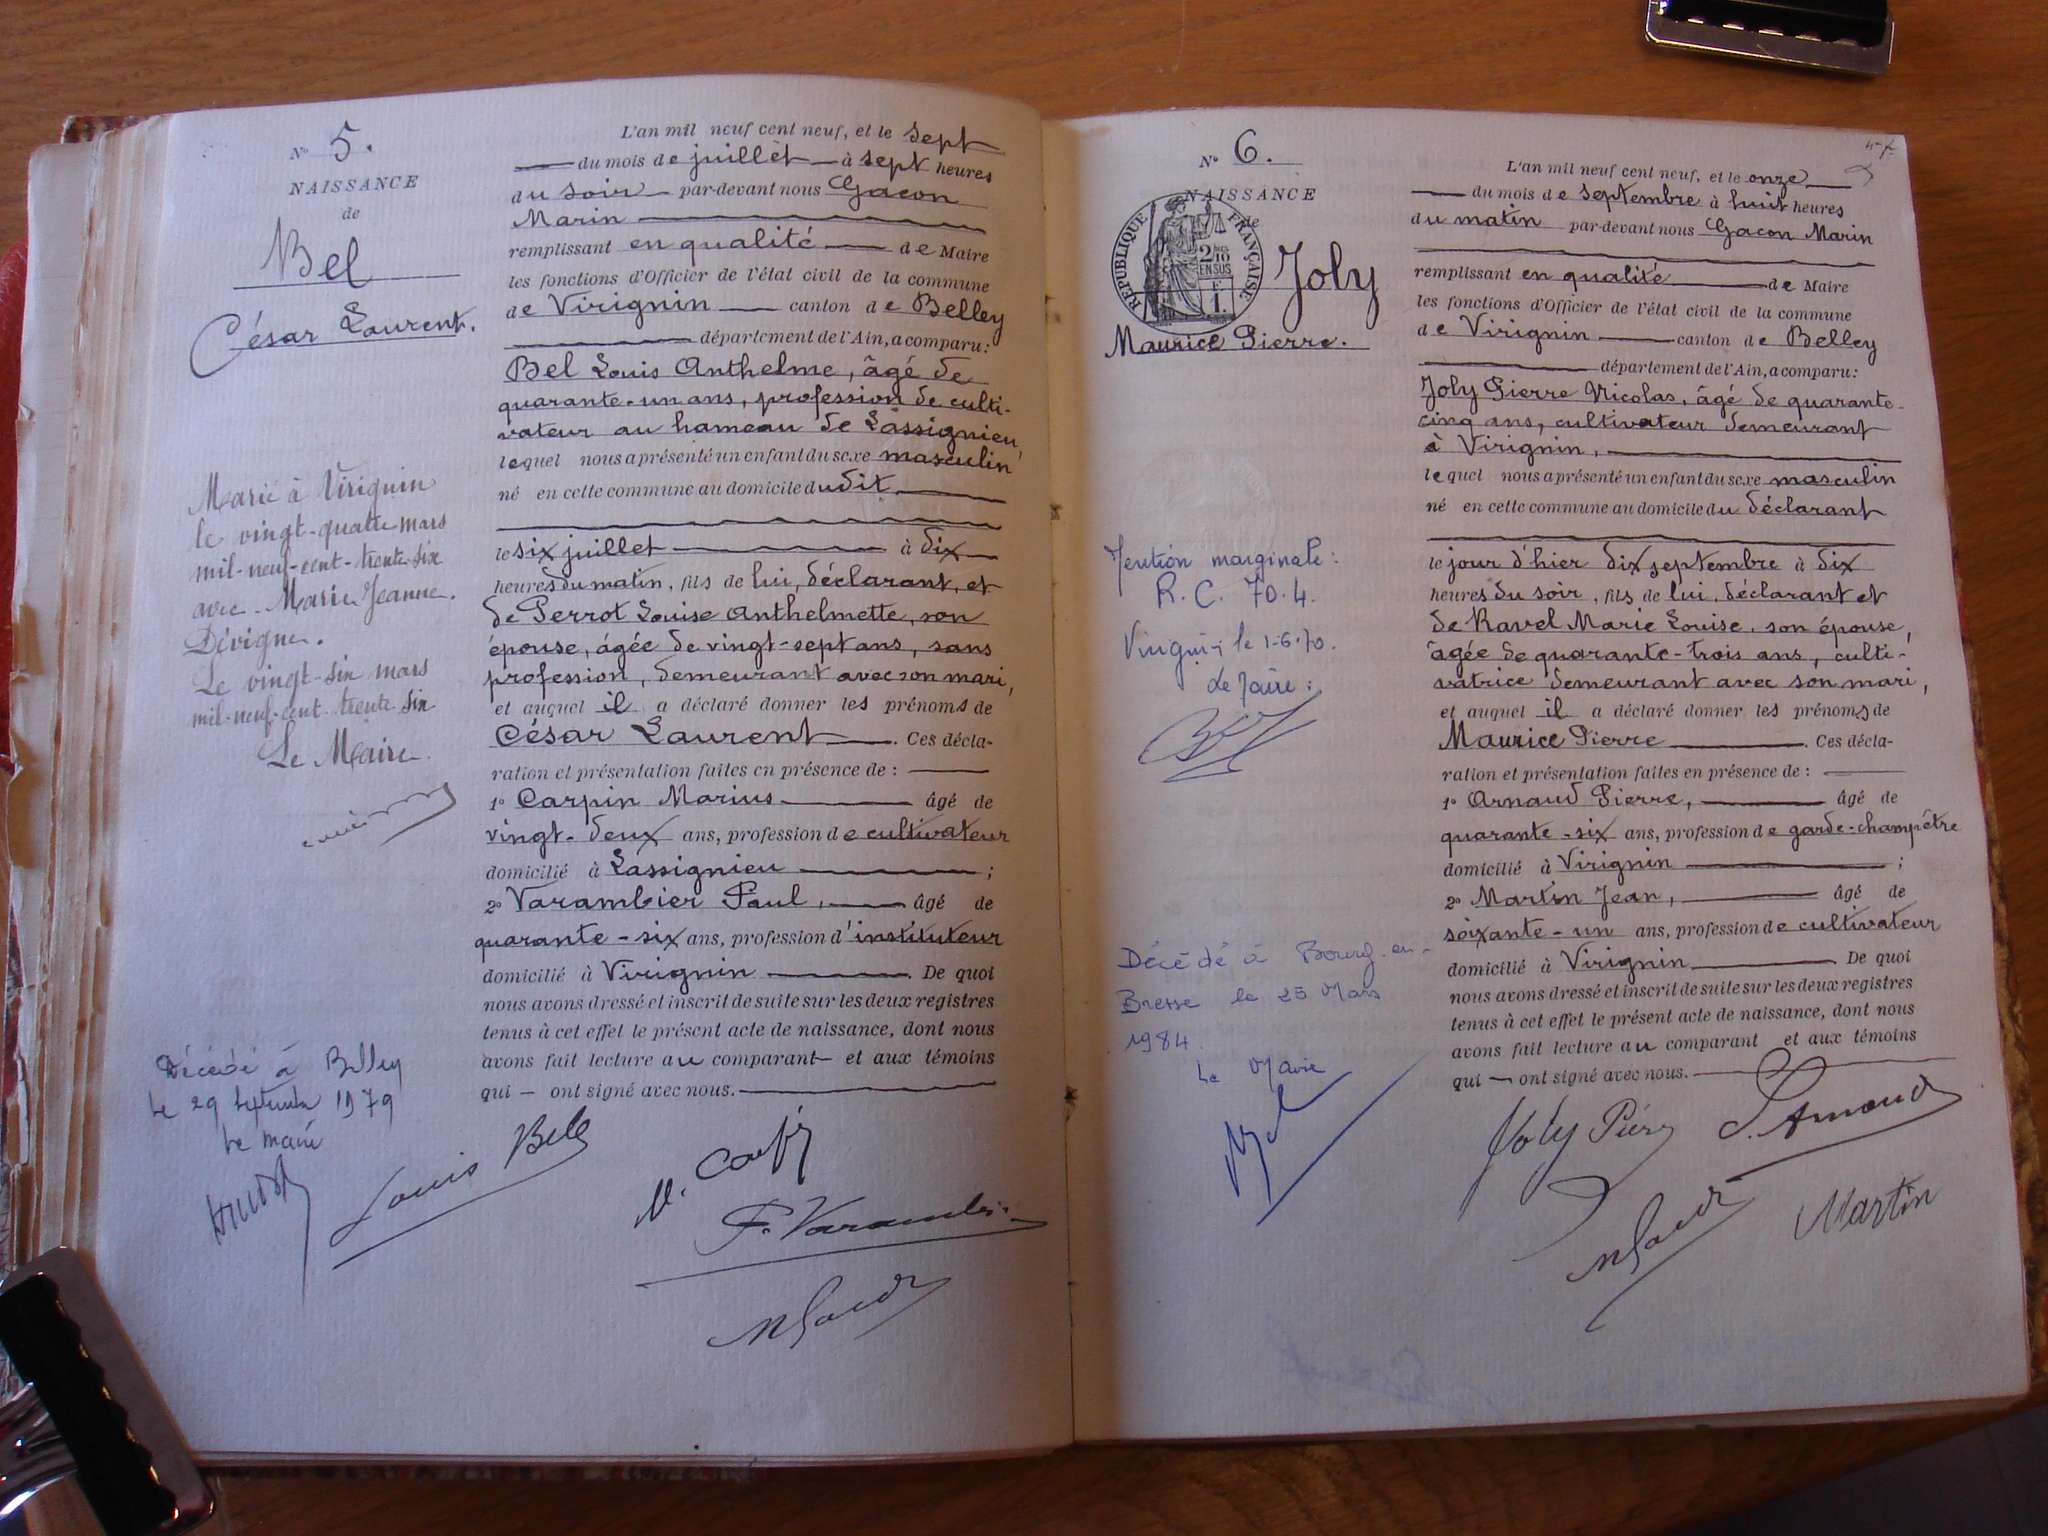 N° 5.
NAISSANCE
de
Bel
César Laurent.
Marié à Virignin
le vingt-quatre mars
mil-neuf-cent-trente-six
avec Marie Jeanne
Dévigne.
Le vingt-six mars
mil-neuf-cent trente six
Le Maire
Décédé à Belley
le 29 septembre 1979
Le maire
L'an mil neuf cent neuf, et le sept
du mois de juillet à sept heures
du soir par-devant nous Gacon
Marin
remplissant en qualité de Maire
les fonctions d'Officier de l'état civil de la commune
de Virignin canton de Belley
département de l'Ain, a comparu:
Bel Louis Anthelme, âgé de
quarante-un ans, profession de culti-
vateur au hameau de Lassignieu,
lequel nous a présenté un enfant du sexe masculin
né en cette commune au domicile dudit
le six juillet à dix
heures du matin, fils de lui, déclarant, et
de Perrot Louise Anthelmette, son
épouse, âgée de vingt-sept ans, sans
profession, demeurant avec son mari,
et auquel il a déclaré donner les prénoms de
César Laurent. Ces décla-
ration et présentation faites en présence de :
1° Carpin Marius âgé de
vingt-deux ans, profession de cultivateur
domicilié à Lassignieu ;
2° Varambier Paul, âgé de
quarante-six ans, profession d'instituteur
domicilié à Virignin. De quoi
nous avons dressé et inscrit de suite sur les deux registres
tenus à cet effet le présent acte de naissance, dont nous
avons fait lecture au comparant et aux témoins
qui – ont signé avec nous.
Louis Bel
P. Varambier
N° 6.
NAISSANCE
de
RÉPUBLIQUE FRANÇAISE
2/10 EN SUS
F 1.
Joly
Maurice Pierre.
Mention marginale :
R.C. 70.4.
le 1-6-70.
Le Maire :
Décédé à Bourg-en-
Bresse le 25 Mars
1984.
Le Maire
L'an mil neuf cent neuf, et le onze
du mois de septembre à huit heures
du matin par-devant nous Gacon Marin
remplissant en qualité de Maire
les fonctions d'Officier de l'état civil de la commune
de Virignin canton de Belley
département de l'Ain, a comparu:
Joly Pierre Nicolas, âgé de quarante-
cinq ans, cultivateur demeurant
à Virignin,
lequel nous a présenté un enfant du sexe masculin
né en cette commune au domicile du déclarant
le jour d'hier dix septembre à dix
heures du soir, fils de lui, déclarant et
de Ravel Marie Louise, son épouse,
âgée de quarante-trois ans, culti-
vatrice demeurant avec son mari,
et auquel il a déclaré donner les prénoms de
Maurice Pierre. Ces décla-
ration et présentation faites en présence de :
1° Arnaud Pierre, âgé de
quarante-six ans, profession de garde-champêtre
domicilié à Virignin ;
2° Martin Jean, âgé de
soixante-un ans, profession de cultivateur
domicilié à Virignin. De quoi
nous avons dressé et inscrit de suite sur les deux registres
tenus à cet effet le présent acte de naissance, dont nous
avons fait lecture au comparant et aux témoins
qui – ont signé avec nous.
Joly Pierre P. Arnaud
Martin